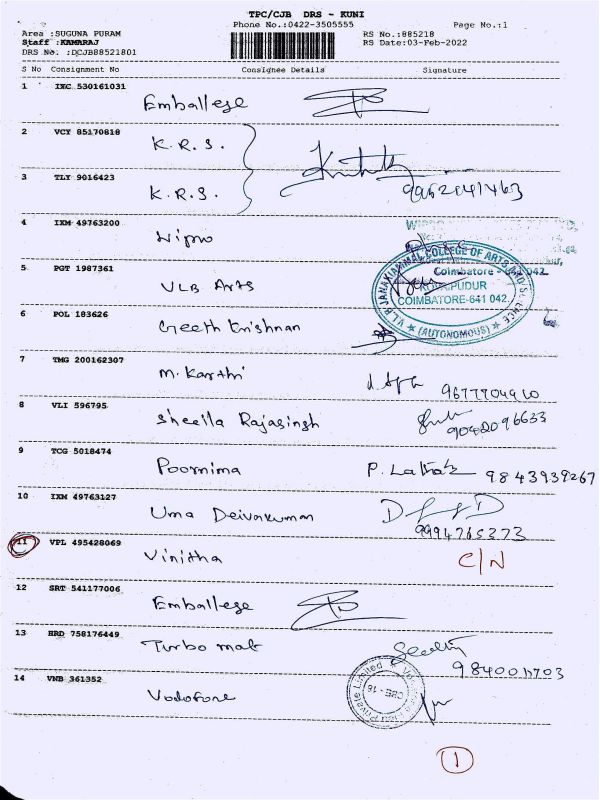 TPC/CJB DRS - KUNI
Phone No.:0422-3505555 Page No.:1
Area :SUGUNA PURAM RS No.:885218
Staff :KAMARAJ RS Date:03-Feb-2022
DRS No. :DCJB88521801
S No Consignment No Consignee Details Signature
1 IXC 530161031
Emballese
2 VCY 85170818
K.R.S.
3 TLY 9016423
K.R.S. 9952041463
4 IXM 49763200
Wipro
5 PGT 1987361
VLB Arts
V.L.B. JANAKIAMMAL COLLEGE OF ARTS AND SCIENCE
Coimbatore - 641 042.
KOVAIPUDUR
COIMBATORE-641 042.
(AUTONOMOUS)
6 POL 183626
Geeth Krishnan
7 TMG 200162307
M. Karthi 9677704910
8 VLI 596795
Sheeila Rajasingh 9042096633
9 TCG 5018474
Poornima 9843939267
10 IXM 49763127
Uma Deivakumar
9994765373
11 VPL 495428069
Vinitha C/N
12 SRT 541177006
Emballese
13 HRD 758176449
Turbo mat
14 VNB 361352
Vodofone
Private Limited
CBE - 18
1